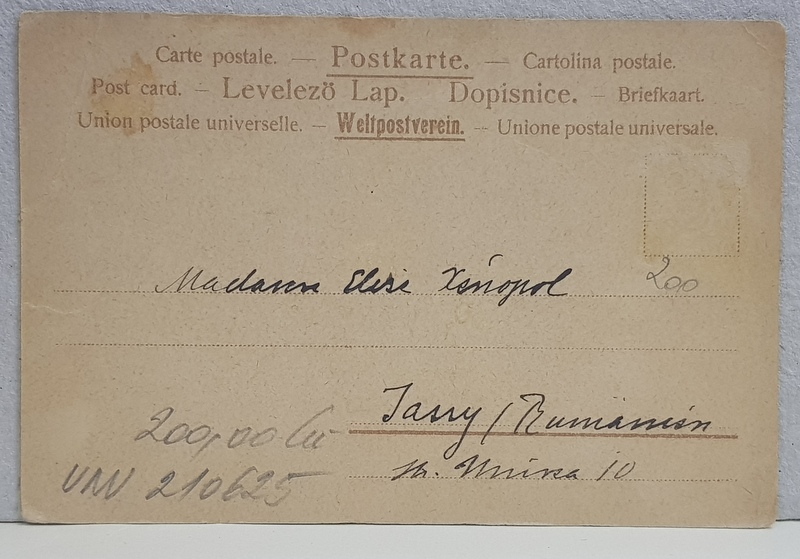 Carte postale. — Postkarte. — Cartolina postale.
Post card. — Levelezö Lap. Dopisnice. — Briefkaart.
Union postale universelle. — Weltpostverein. — Unione postale universale.
200
Madame Elise Xénopol
Jassy / Rumänien
200,00 lei
str. 10
210625